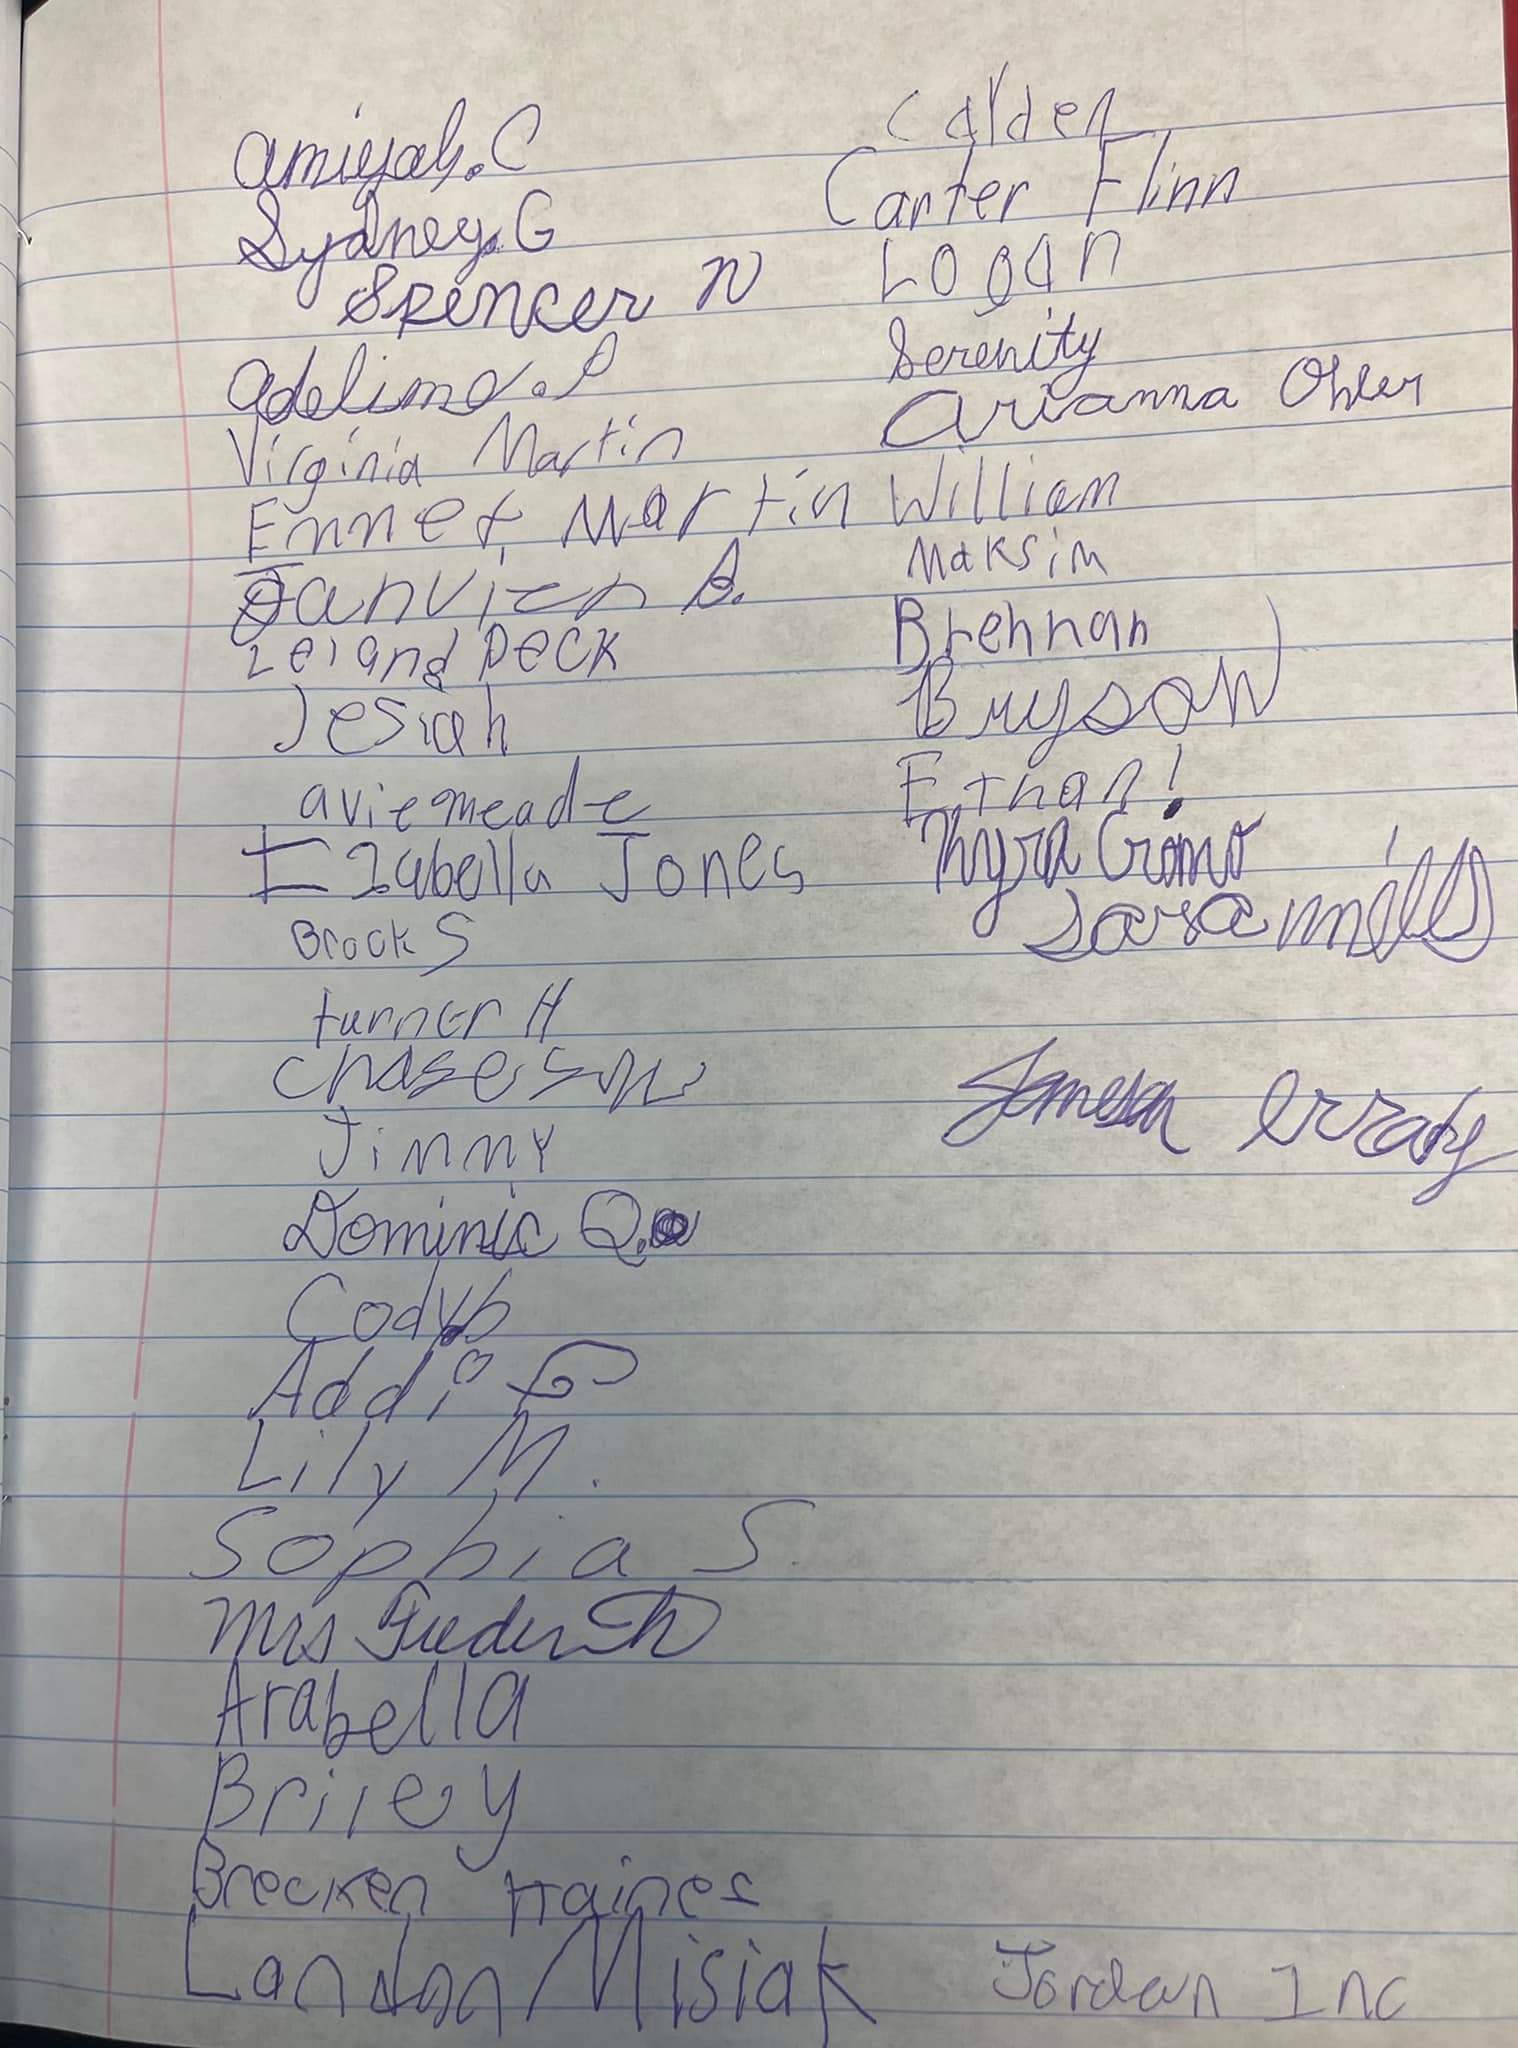 amiyah.C
Sydney.G
Spencer N
adeline.P
Virginia Martin
Emmet Martin
Janvier B.
Leland Peck
Jesiah
avie meade
Izabella Jones
Brock S
turner H
chase
Jimmy
Dominic Q.
Cody.b
Addi
Lily M.
Sophia S.
Mrs Frederick
Arabella
Briley
Brecken Haines
Landon Misiak
Calder
Carter Flinn
Logan
Serenity
Arianna Ohler
William
Maksim
Brennan
Bryson
Ethan!
Kyra
Sara mills
Jameson
Jordan Inc